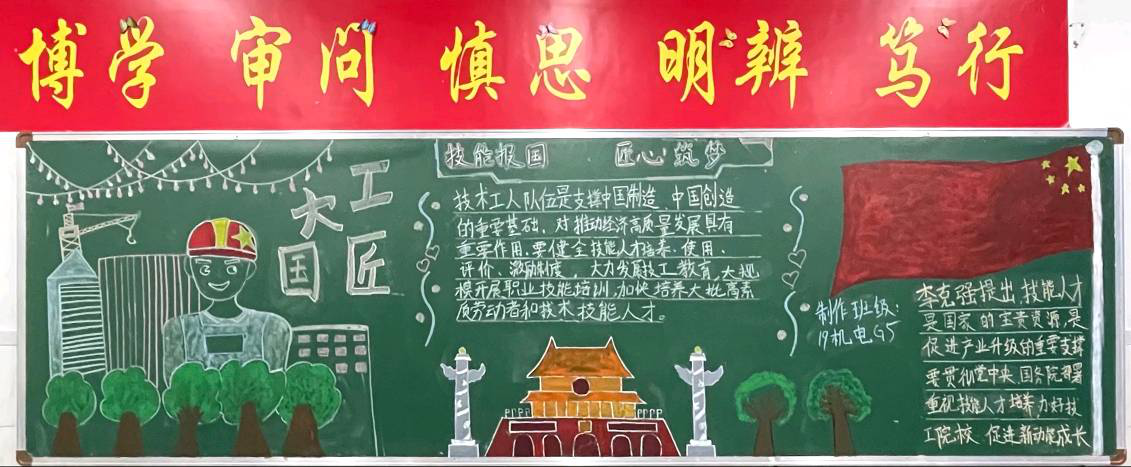 博学 审问 慎思 明辨 笃行
大国工匠
技能报国 匠心筑梦
技术工人队伍是支撑中国制造、中国创造
的重要基础，对推动经济高质量发展具有
重要作用。要健全技能人才培养、使用、
评价、激励制度，大力发展技工教育，大规
模开展职业技能培训，加快培养大批高素
质劳动者和技术技能人才。
制作班级：
19机电G5
李克强提出，技能人才
是国家的宝贵资源，是
促进产业升级的重要支撑
要贯彻党中央、国务院部署
重视技能人才培养，办好技
工院校，促进新动能成长